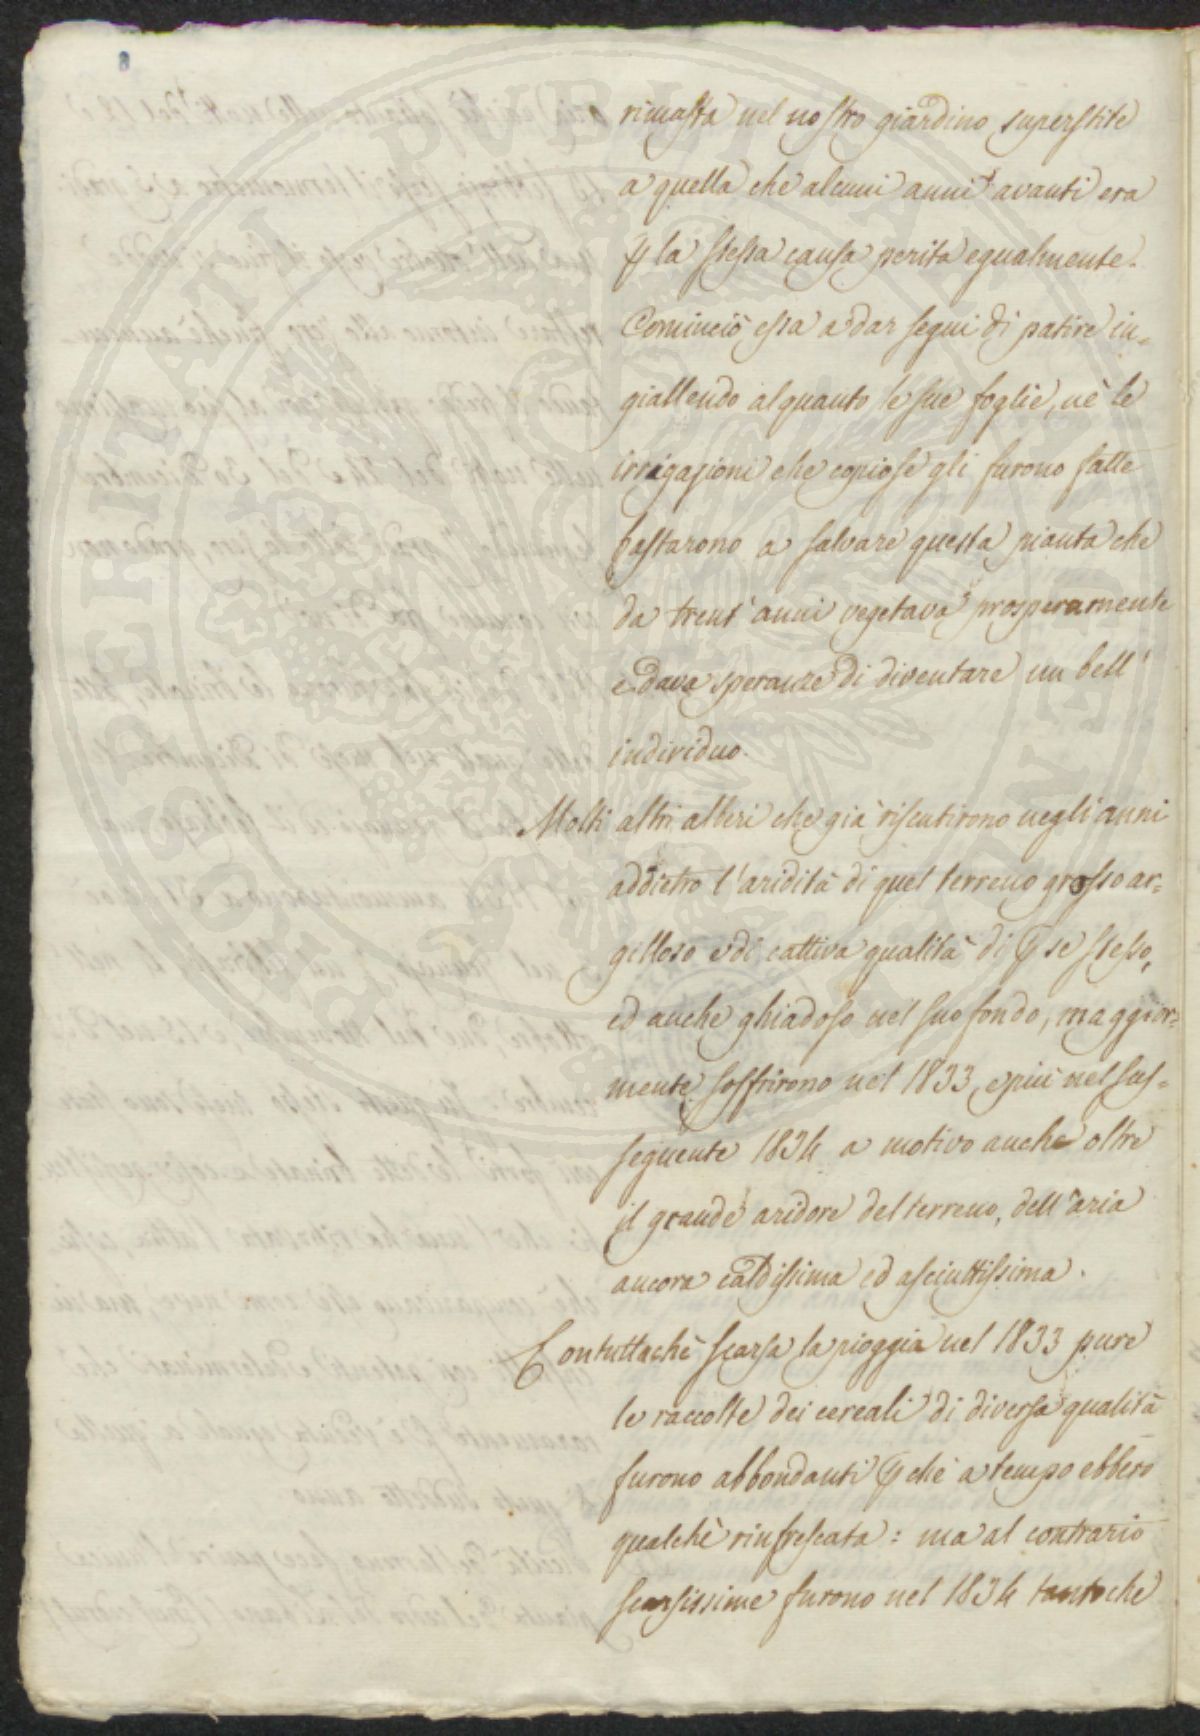 8
rimasta nel nostro giardino superstite
a quella che alcuni anni avanti era
ꝑ la stessa causa perita egualmente.
Cominciò essa a dar segni di patire in=
giallendo alquanto le sue foglie, nè le
irrigazioni che copiose gli furono fatte
bastarono a salvare questa pianta che
da trent'anni vegetava prosperamente
e dava speranze di diventare un bell'
individuo.
Molti altri alberi che già risentirono negli anni
addietro l'aridità di quel terreno grosso ar=
gilloso e di cattiva qualità di ꝑ se stesso,
ed anche ghiadoso nel suo fondo, maggior=
mente soffrirono nel 1833, e più nel sus=
seguente 1834 a motivo anche oltre
il grande aridore del terreno, dell'aria
ancora caldissima ed asciuttissima.
Contuttachè scarsa la pioggia nel 1833 pure
le raccolte dei cereali di diversa qualità
furono abbondanti ꝑchè a tempo ebbero
qualchè rinfrescata: ma al contrario
scarsissime furono nel 1834 tantoche
PROSPERITATI PUBLICAE AUGENDAE